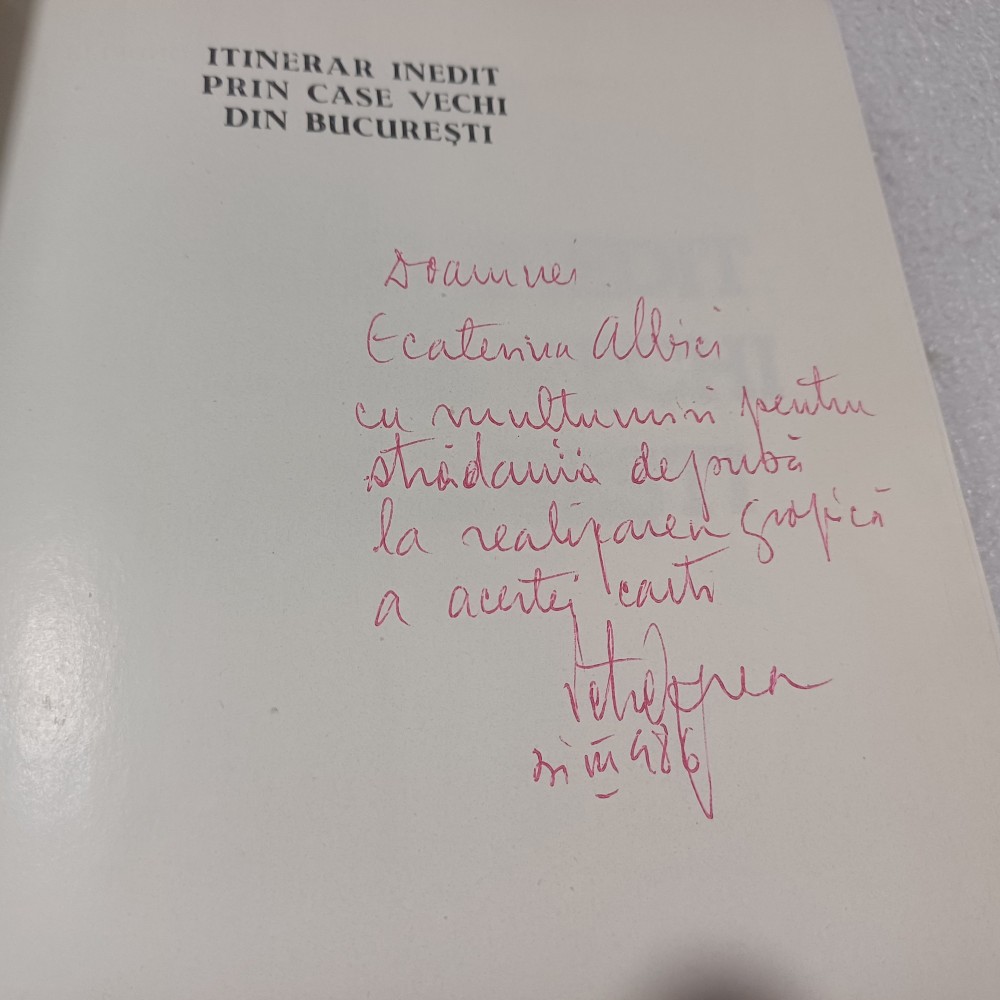 ITINERAR INEDIT
PRIN CASE VECHI
DIN BUCUREȘTI
Doamnei
Ecaterina Albici
cu multumiri pentru
strădania depusă
la realizarea grafică
a acestei carti
III 986